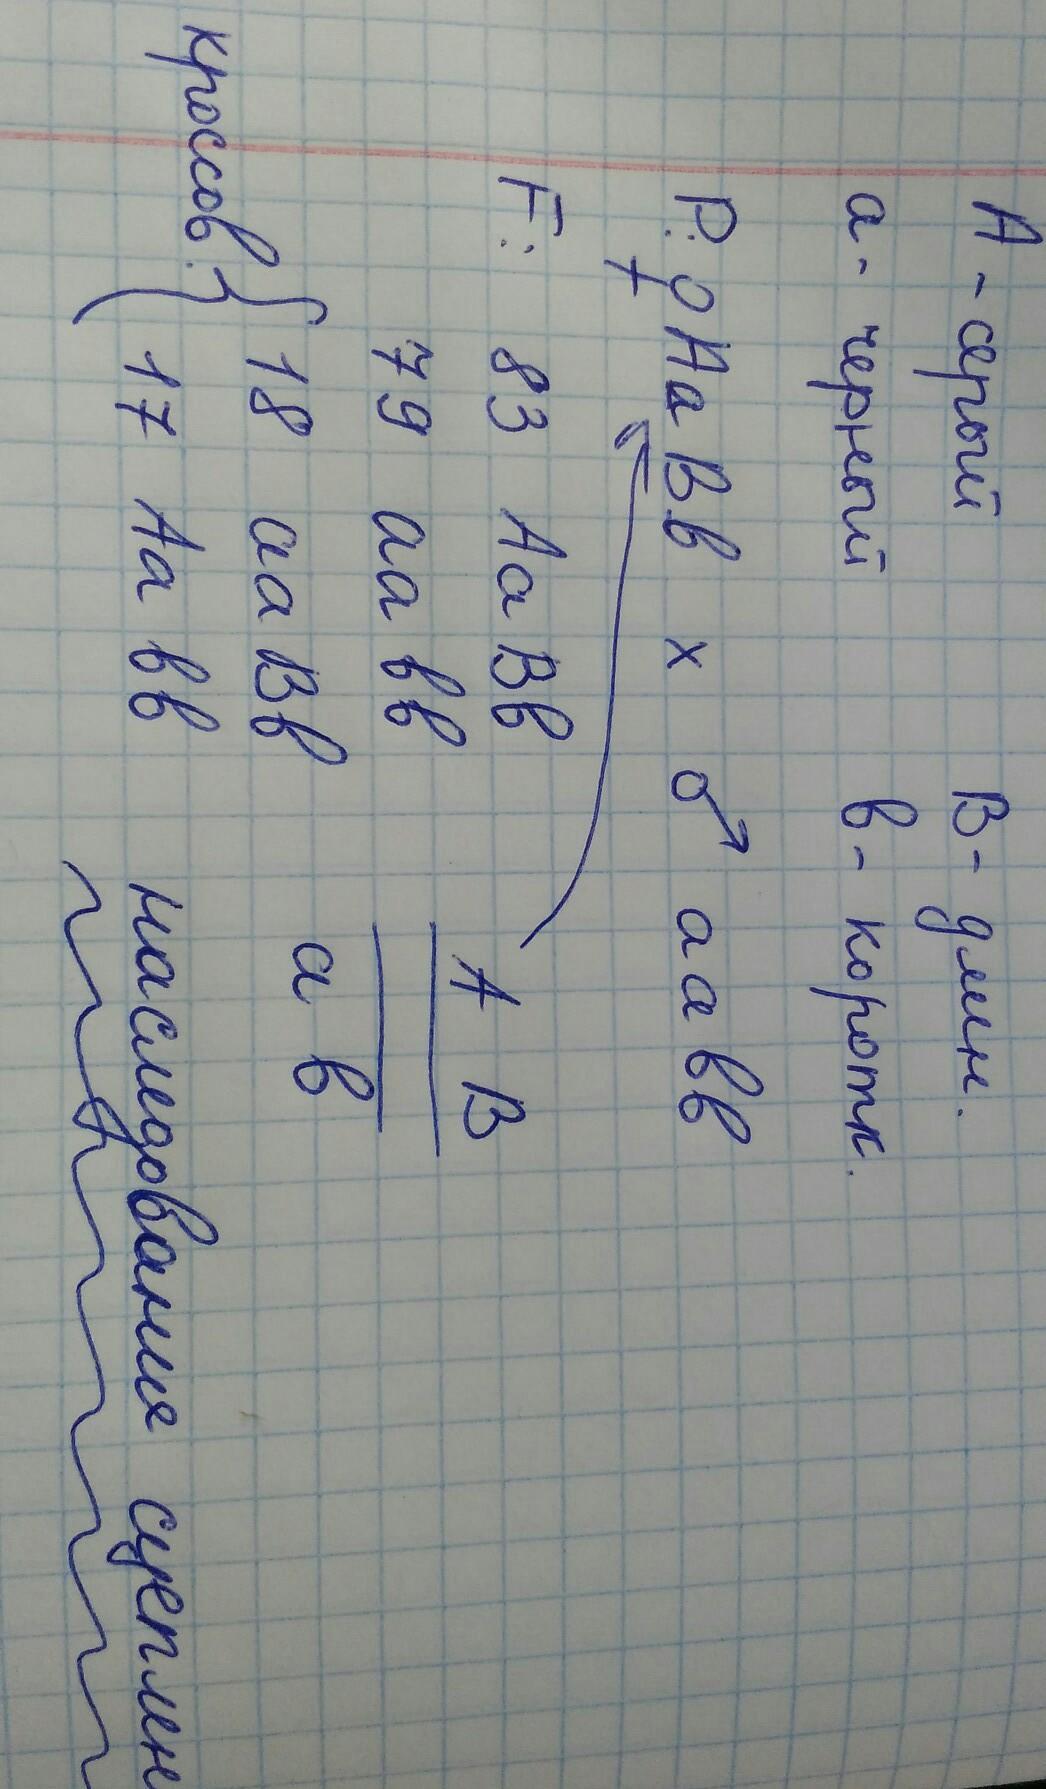 А - серый В - длин.
а - черный в - коротк.
Р: ♀ АаВв х ♂ аавв
F: 83 АаВв
79 аавв
кроссов. { 18 ааВв
17 Аавв
А В
а в
наследование сцеплен